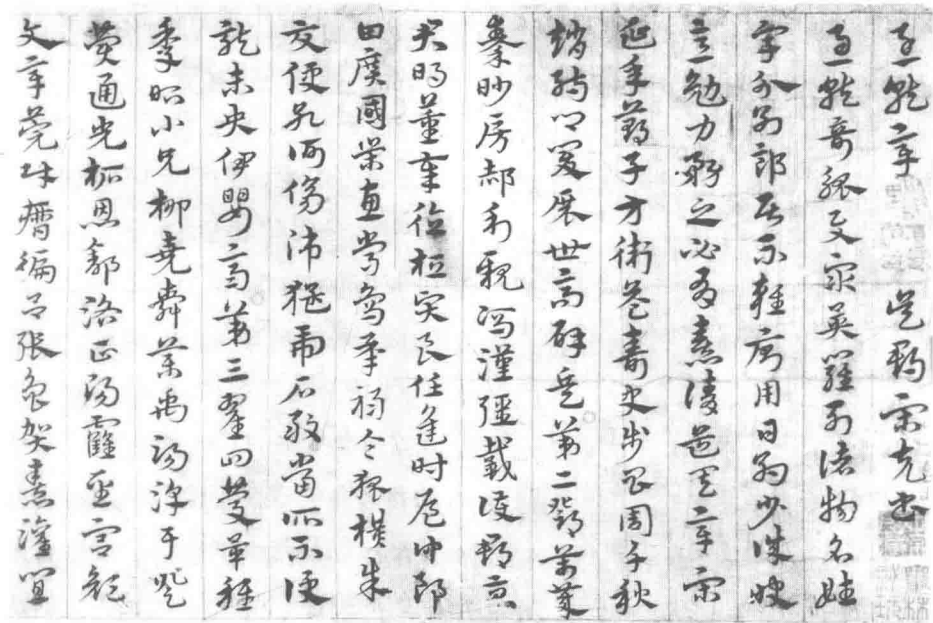 急就章 吳郡宋克書
急就奇觚與衆異羅列諸物名姓
字分別部居不雜廁用日約少誠快
意勉力務之必有憙請道其章宋
延年鄭子方衛益壽史步昌周千秋
趙孺卿爰展世高辟兵第二鄧萬歲
秦眇房郝利親馮漢彊戴護郡景
君明董奉德桓賢良任逢時侯仲郎
田廣國榮惠常烏承祿令狐橫朱
交便孔何傷師猛虎石敢當所不侵
龍未央伊嬰齊第三翟回慶畢稚
季昭小兄柳堯舜樂禹湯淳于登
費通光柘恩舒洛正陽霍聖宮顏
文章莞財歷徧呂張魯賀憙灌宜